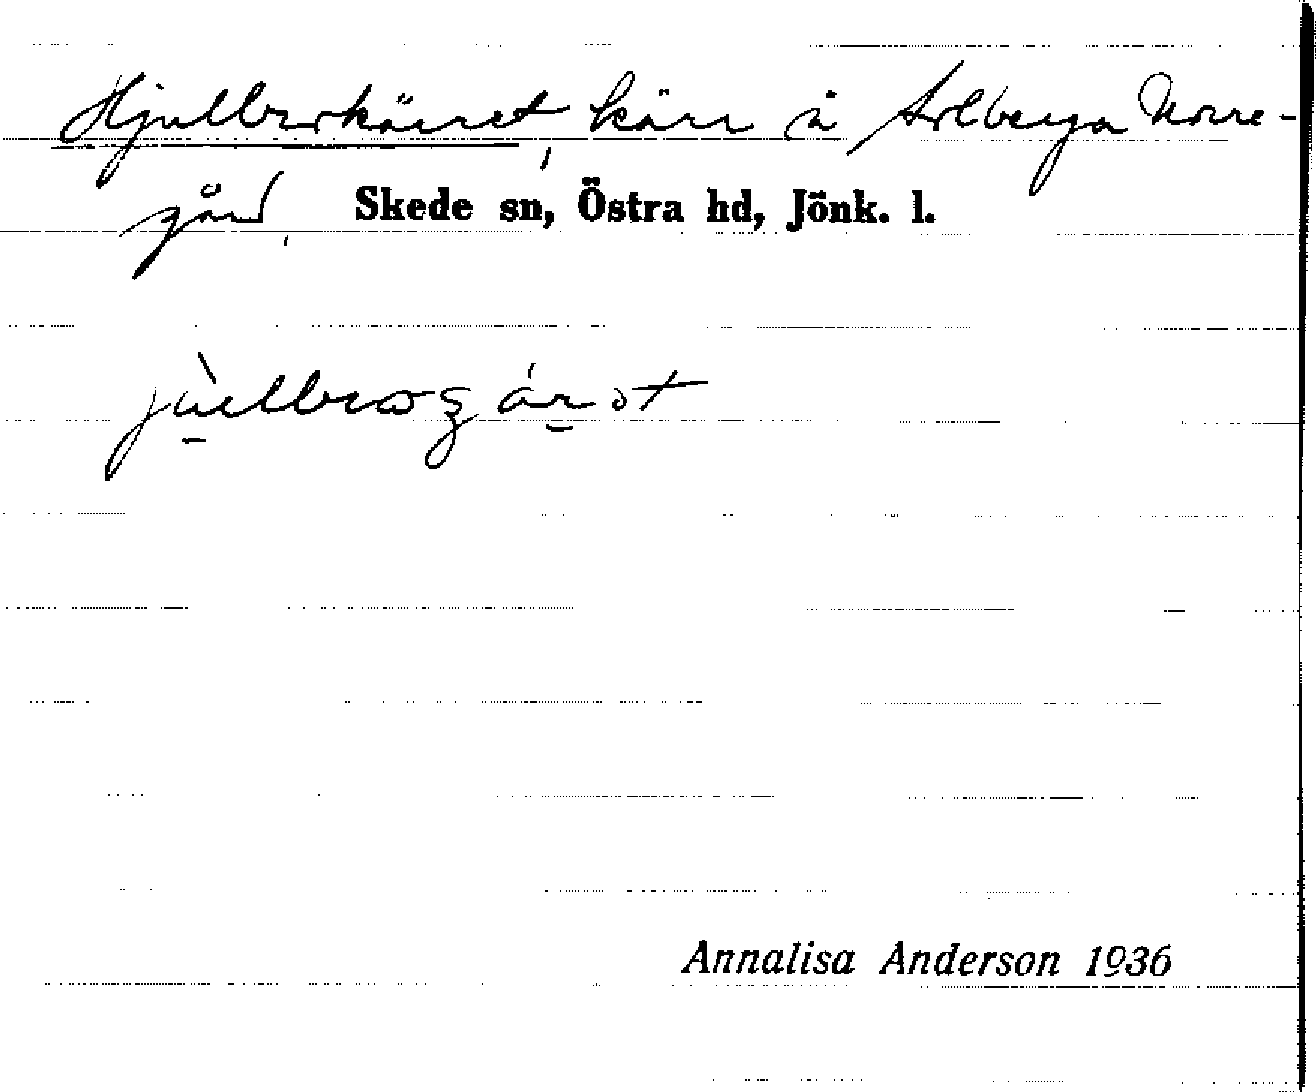 Hjulbrokärret, kärr å Solberga Norre-
gård, Skede sn, Östra hd, Jönk. l.
Annalisa Anderson 1936